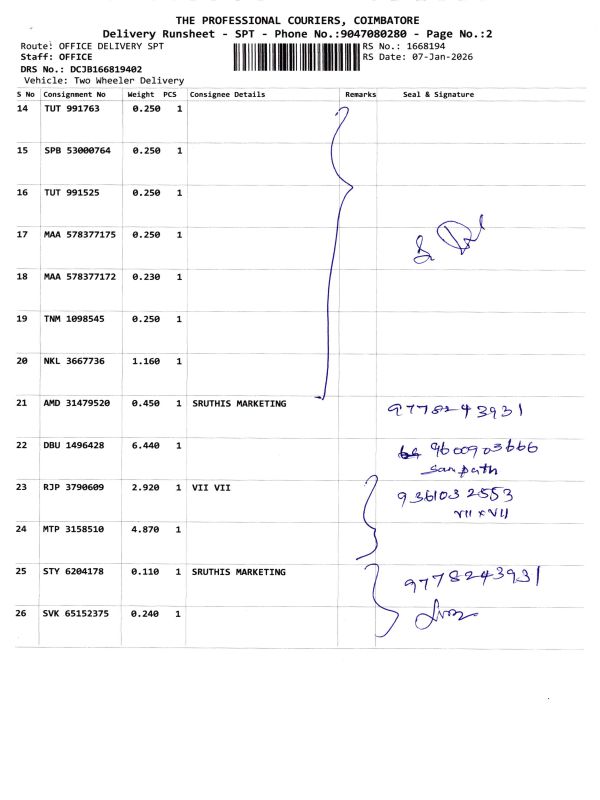 THE PROFESSIONAL COURIERS, COIMBATORE
Delivery Runsheet - SPT - Phone No.:9047080280 - Page No.:2
Route: OFFICE DELIVERY SPT RS No.: 1668194
Staff: OFFICE RS Date: 07-Jan-2026
DRS No.: DCJB166819402
Vehicle: Two Wheeler Delivery
S No Consignment No Weight PCS Consignee Details Remarks Seal & Signature
14 TUT 991763 0.250 1
15 SPB 53000764 0.250 1
16 TUT 991525 0.250 1
17 MAA 578377175 0.250 1
18 MAA 578377172 0.230 1
19 TNM 1098545 0.250 1
20 NKL 3667736 1.160 1
21 AMD 31479520 0.450 1 SRUTHIS MARKETING 9778243931
22 DBU 1496428 6.440 1 9600903666
Sampath
23 RJP 3790609 2.920 1 VII VII 9361032553
VII x VII
24 MTP 3158510 4.870 1
25 STY 6204178 0.110 1 SRUTHIS MARKETING 9778243931
26 SVK 65152375 0.240 1